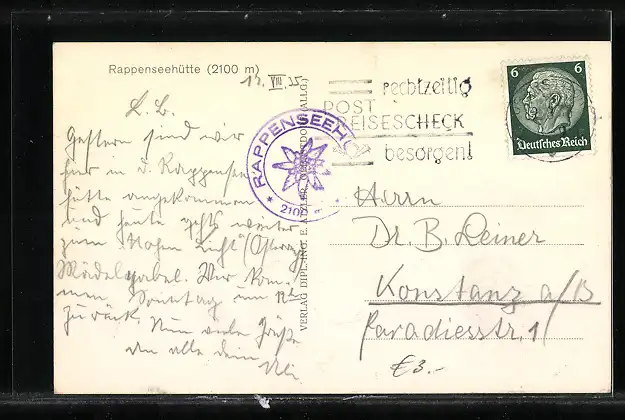 Rappenseehütte (2100 m)
13. VIII 35
L. B.
Gestern sind wir
hier in d. Rappensee
hütte angekommen
und heute geht's weiter
zum Hohen Licht
Mädelegabel. Wir kom-
men Sonntag um
zurück. Nun viele Grüße
an alle dein
RAPPENSEEHÜ
2100
VERLAG DIPL. ING. E.
rechtzeitig
POST
REISESCHECK
besorgen!
6 6
Deutsches Reich
Herrn
Dr. B. Leiner
Konstanz a/B
Paradiesstr. 1
€3.-